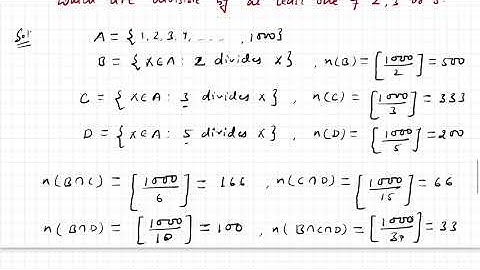 which are divisible by at least one of 2, 3 or 5.
Sol: A = {1, 2, 3, 4, ......, 1000}
B = {x∈A : 2 divides x}, n(B) = [1000/2] = 500
C = {x∈A : 3 divides x}, n(C) = [1000/3] = 333
D = {x∈A : 5 divides x}, n(D) = [1000/5] = 200
n(B∩C) = [1000/6] = 166, n(C∩D) = [1000/15] = 66
n(B∩D) = [1000/10] = 100, n(B∩C∩D) = [1000/30] = 33